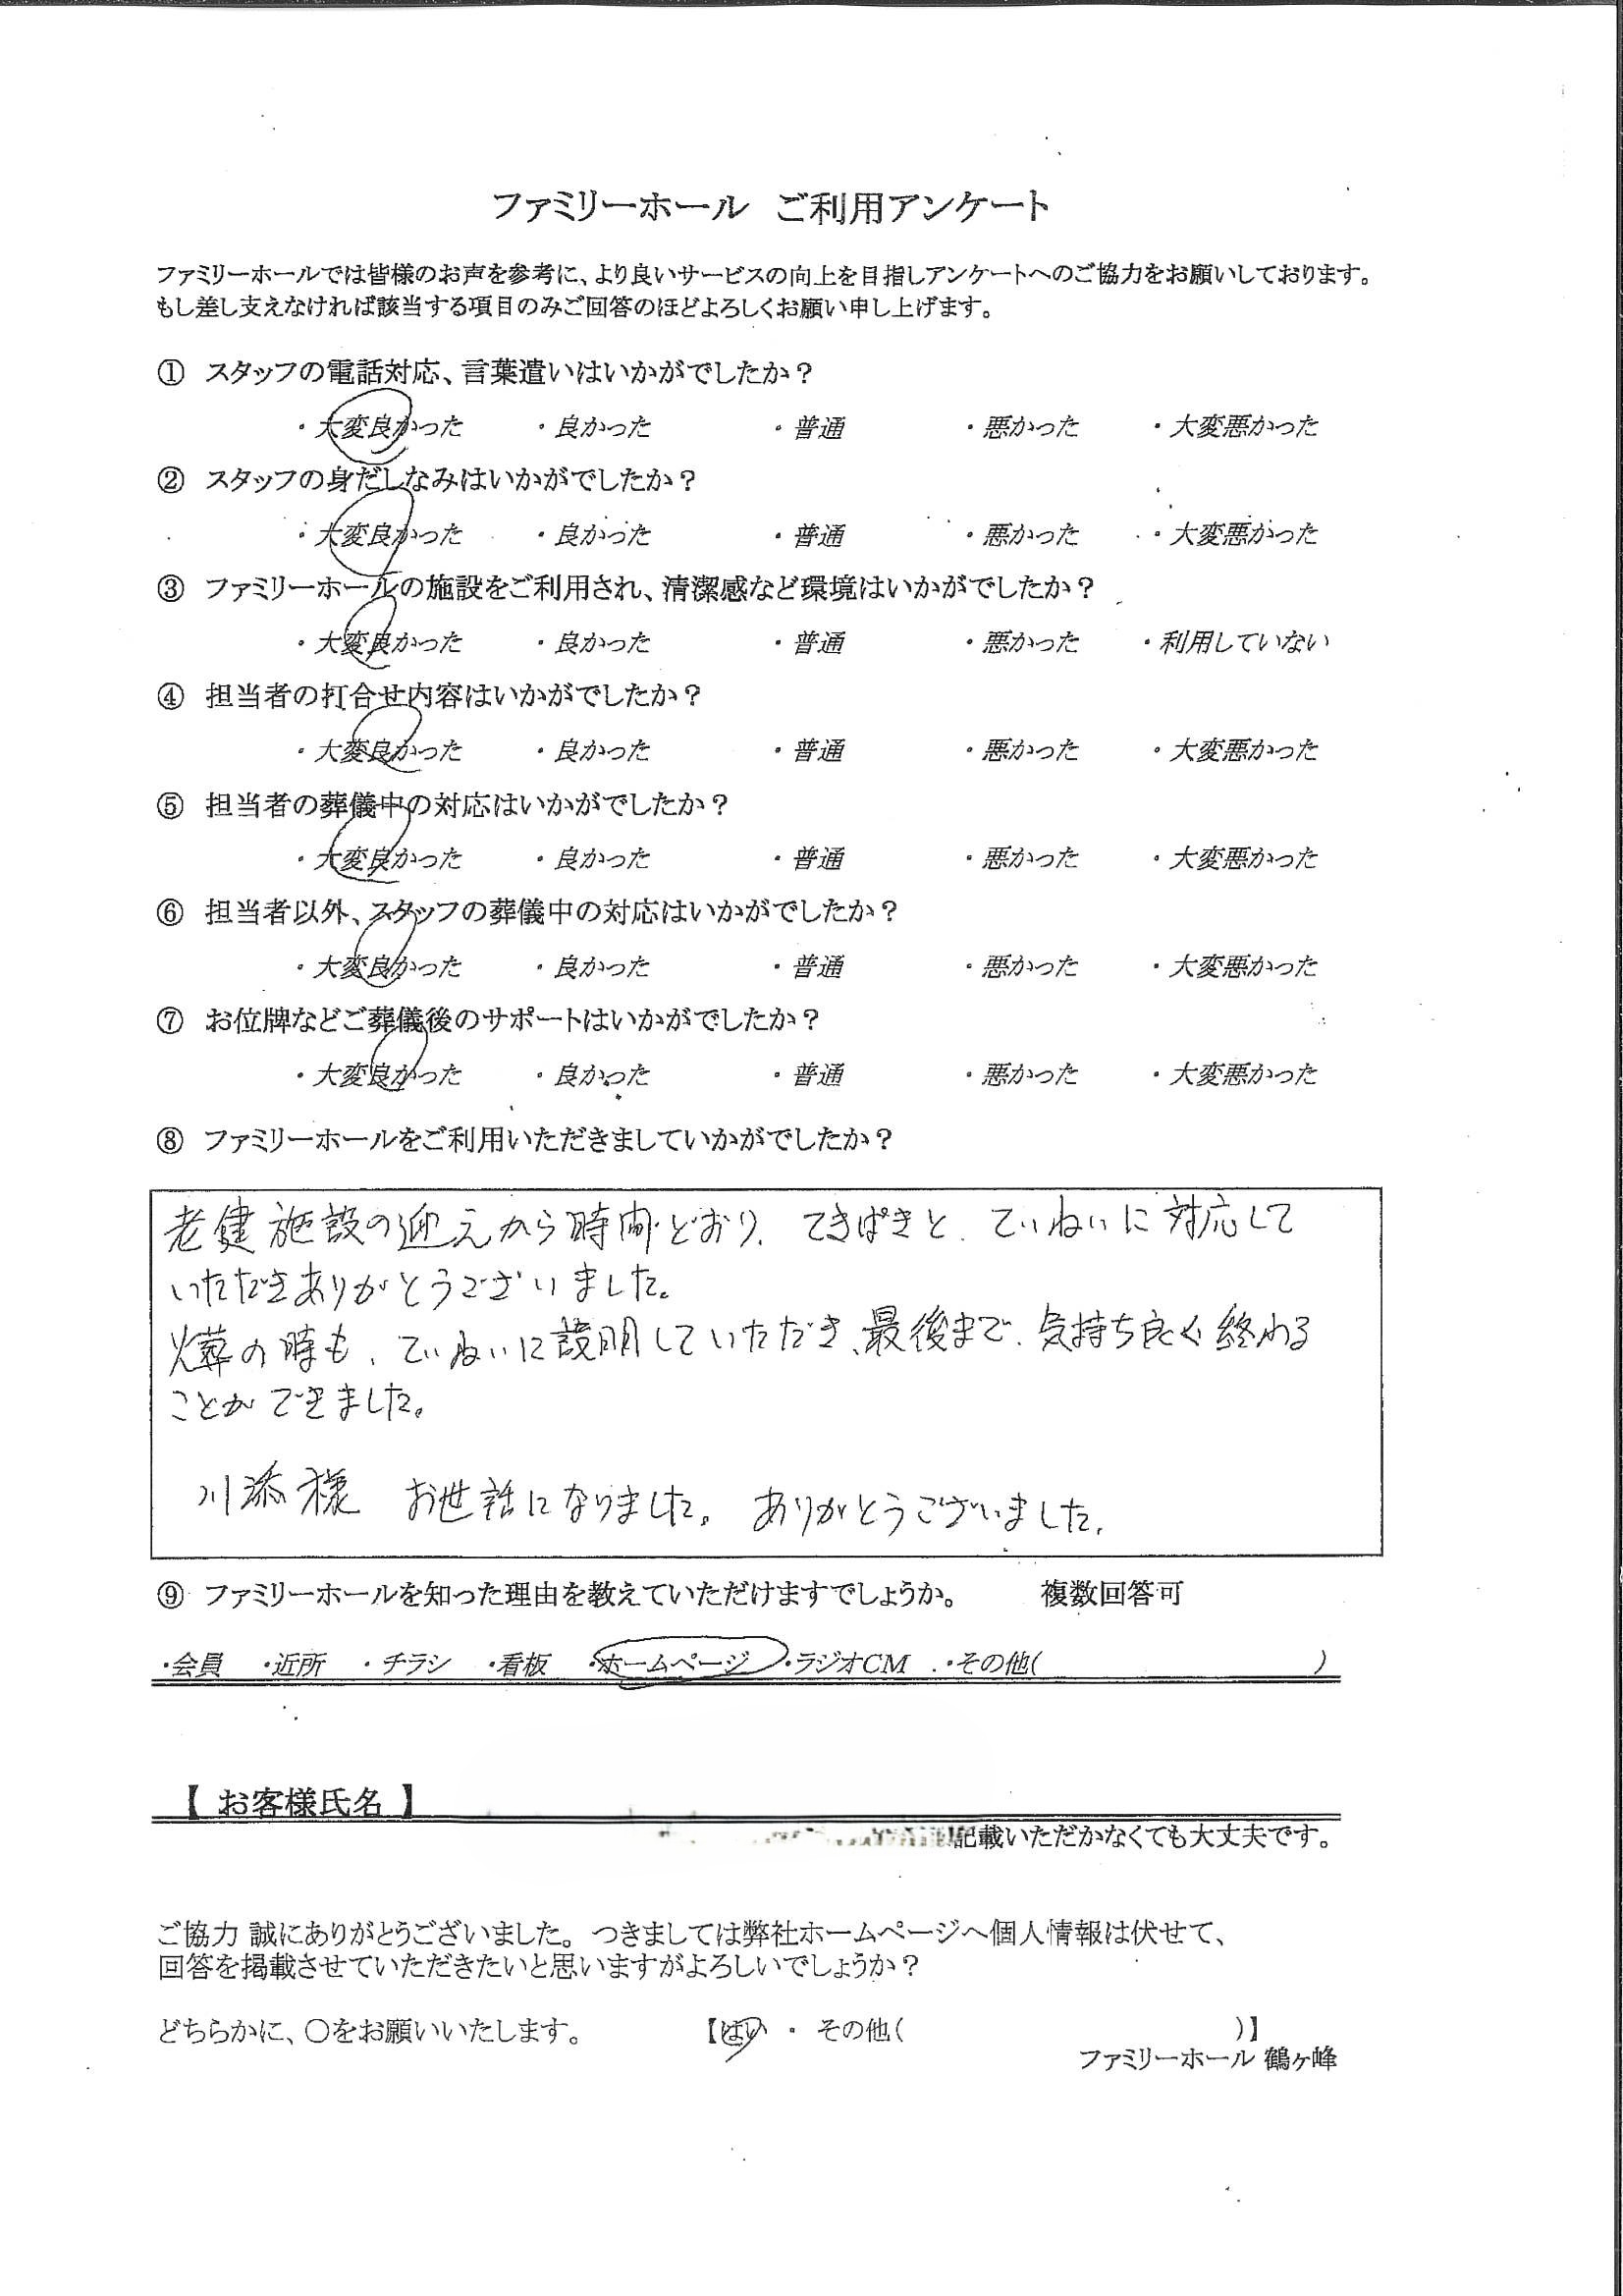 ファミリーホール ご利用アンケート
ファミリーホールでは皆様のお声を参考に、より良いサービスの向上を目指しアンケートへのご協力をお願いしております。
もし差し支えなければ該当する項目のみご回答のほどよろしくお願い申し上げます。
① スタッフの電話対応、言葉遣いはいかがでしたか？
・大変良かった ・良かった ・普通 ・悪かった ・大変悪かった
② スタッフの身だしなみはいかがでしたか？
・大変良かった ・良かった ・普通 ・悪かった ・大変悪かった
③ ファミリーホールの施設をご利用され、清潔感など環境はいかがでしたか？
・大変良かった ・良かった ・普通 ・悪かった ・利用していない
④ 担当者の打合せ内容はいかがでしたか？
・大変良かった ・良かった ・普通 ・悪かった ・大変悪かった
⑤ 担当者の葬儀中の対応はいかがでしたか？
・大変良かった ・良かった ・普通 ・悪かった ・大変悪かった
⑥ 担当者以外、スタッフの葬儀中の対応はいかがでしたか？
・大変良かった ・良かった ・普通 ・悪かった ・大変悪かった
⑦ お位牌などご葬儀後のサポートはいかがでしたか？
・大変良かった ・良かった ・普通 ・悪かった ・大変悪かった
⑧ ファミリーホールをご利用いただきましていかがでしたか？
老健施設の迎えから時間どおり、てきぱきと、ていねいに対応して
いただきありがとうございました。
火葬の時も、ていねいに説明していただき、最後まで、気持ち良く終わる
ことができました。
川添様 お世話になりました。ありがとうございました。
⑨ ファミリーホールを知った理由を教えていただけますでしょうか。 複数回答可
・会員 ・近所 ・チラシ ・看板 ・ホームページ ・ラジオCM ・その他( )
【 お客様氏名 】
記載いただかなくても大丈夫です。
ご協力 誠にありがとうございました。つきましては弊社ホームページへ個人情報は伏せて、
回答を掲載させていただきたいと思いますがよろしいでしょうか？
どちらかに、〇をお願いいたします。 【はい ・ その他( )】
ファミリーホール 鶴ヶ峰